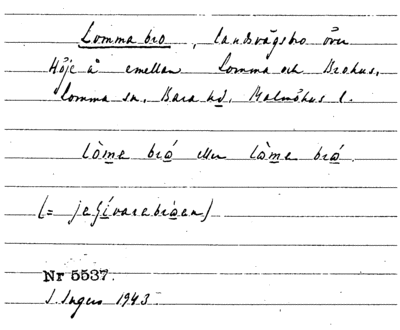 Lomma bro, landsvägsbro över
Höje å emellan Lomma och Brohus,
Lomma sn. Bara hd. Malmöhus l.
lòme brǫ́ eller lòme brǫ́.
(= jeʃívarebroen)
Nr 5537.
I. Ingers 1943.